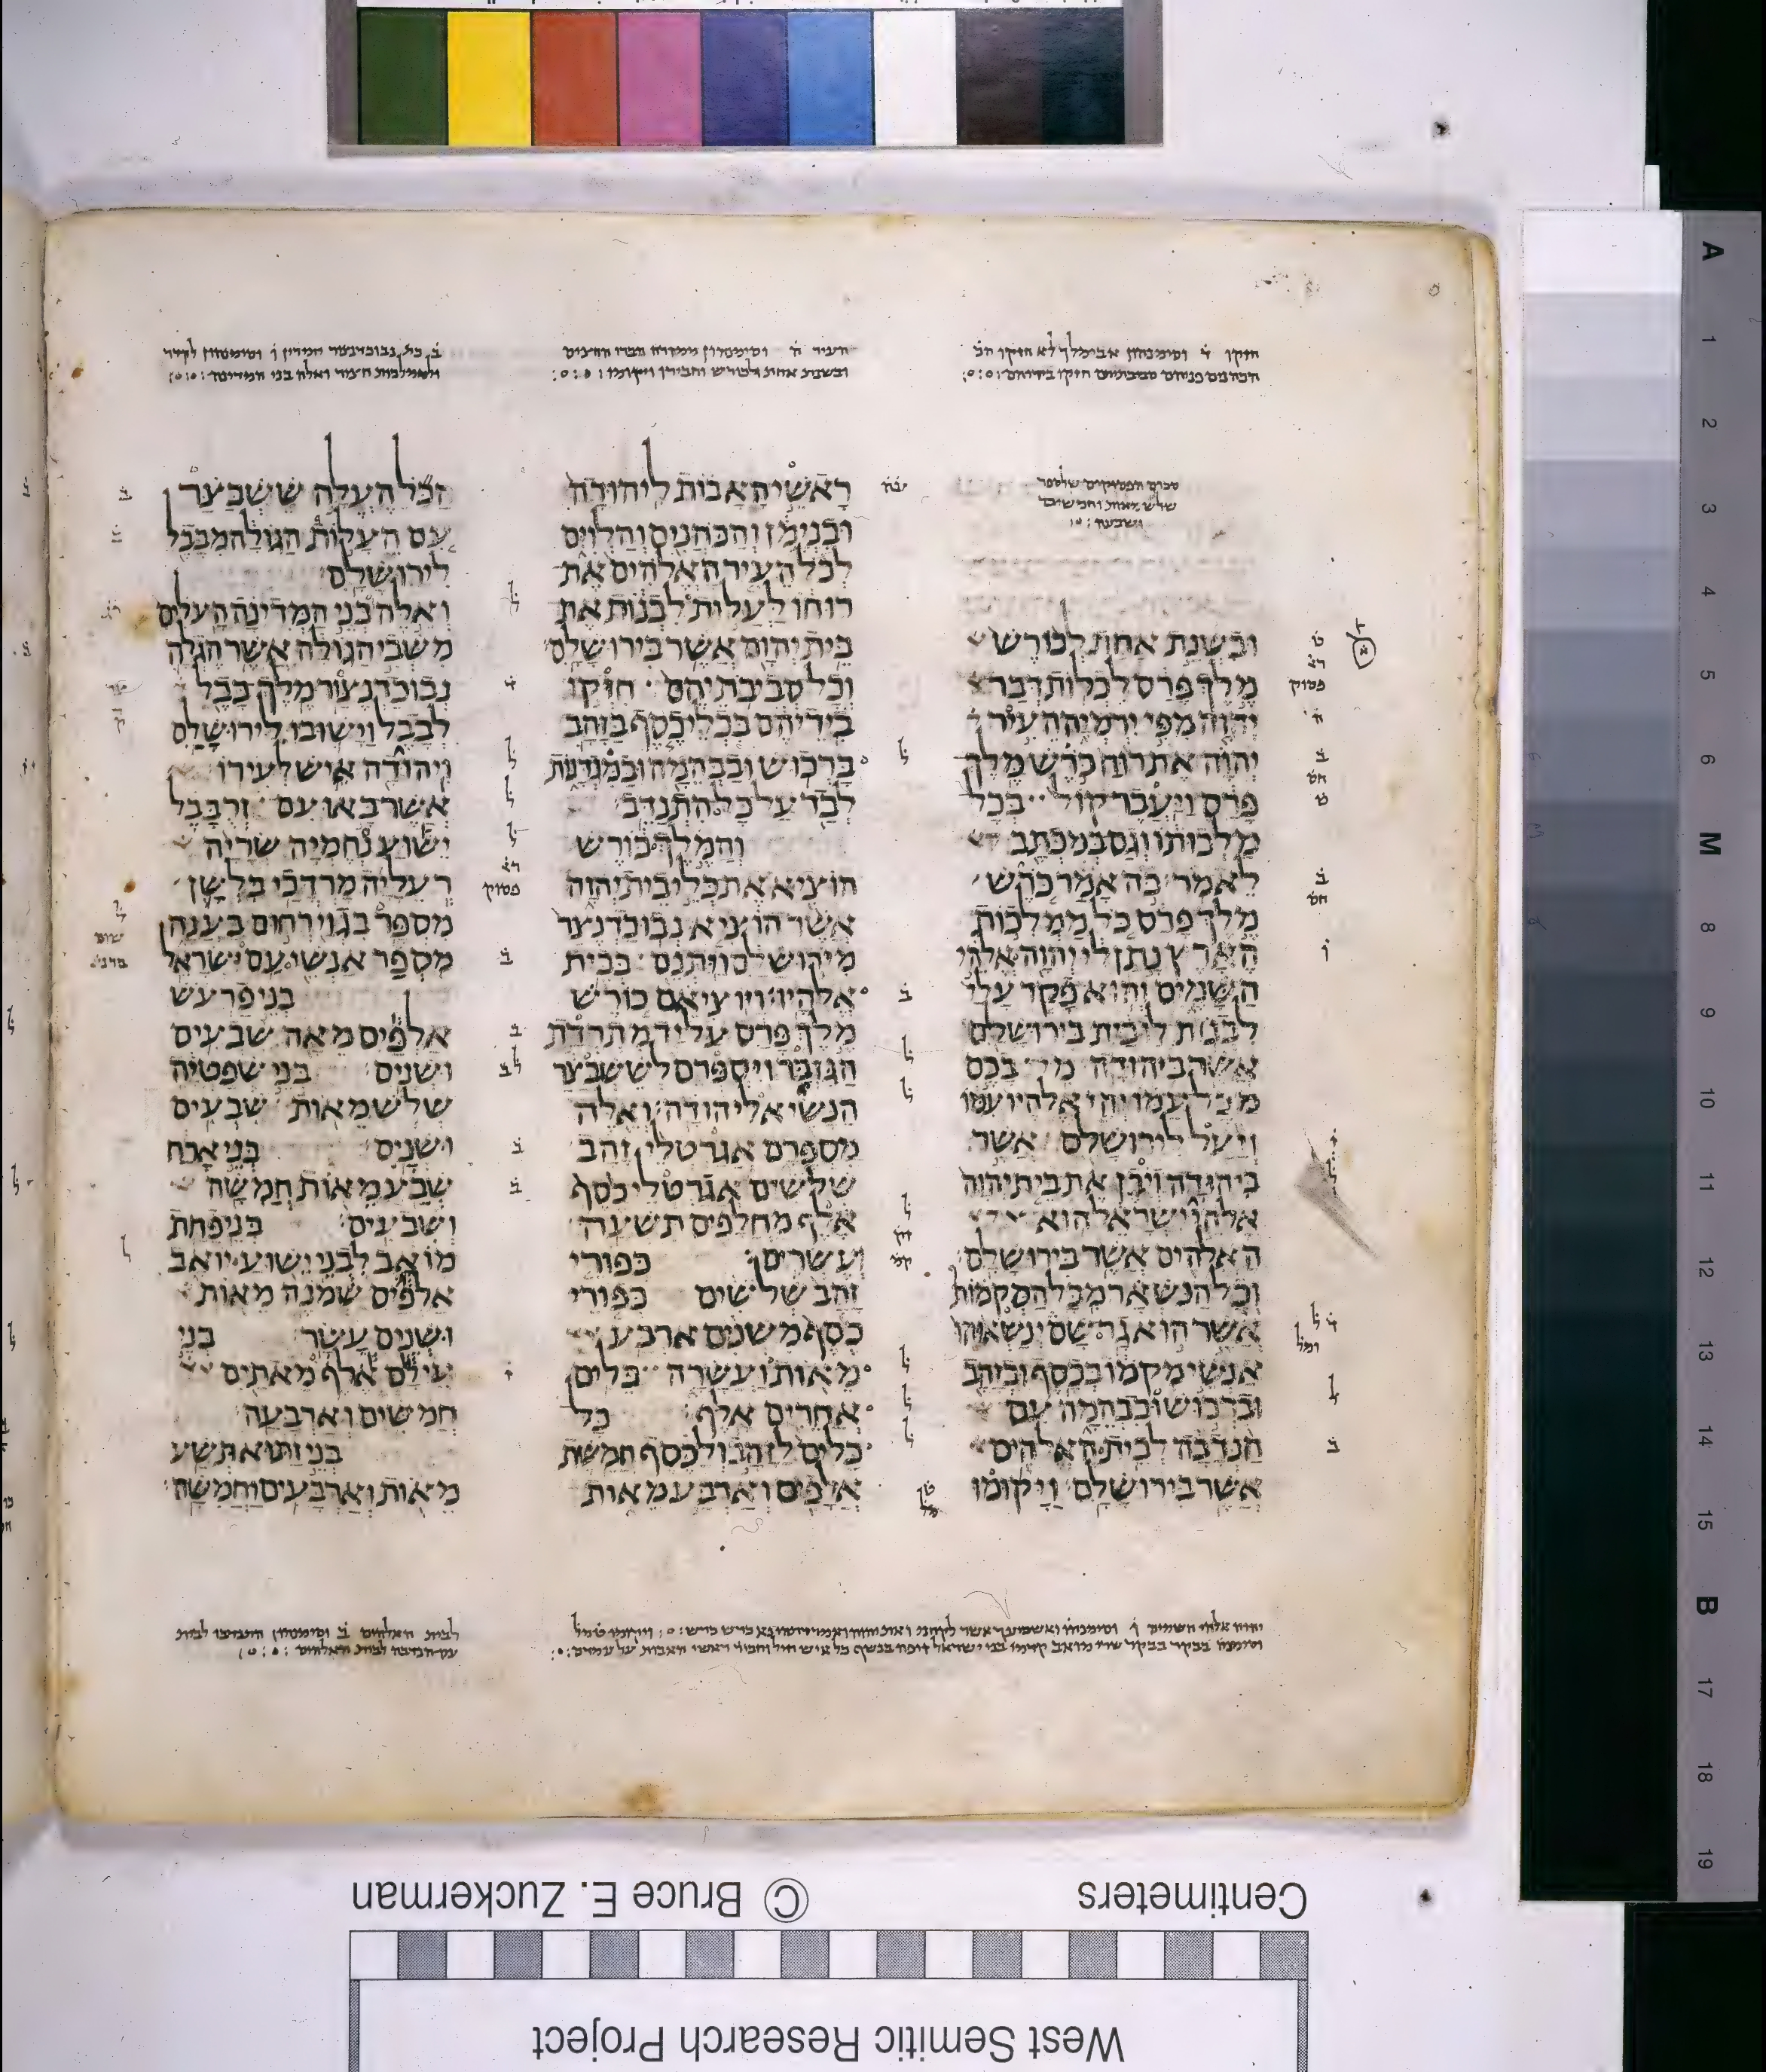 סכום הפסוקים שלספר
שלש מאות וחמישים
ושבעה
ובשנת אחת לכורש
מלך פרס לכלות דבר
יהוה מפי ירמיה העיר
יהוה את רוח כרש מלך
פרס ויעבר קול בכל
מלכותו וגם במכתב
לאמר כה אמר כרש
מלך פרס כל ממלכות
הארץ נתן לי יהוה אלהי
השמים והוא פקד עלי
לבנות לו בית בירושלם
אשר ביהודה מי בכם
מכל עמו יהי אלהיו עמו
ויעל לירושלם אשר
ביהודה ויבן את בית יהוה
אלהי ישראל הוא
האלהים אשר בירושלם
וכל הנשאר מכל המקמות
אשר הוא גר שם ינשאוהו
אנשי מקמו בכסף ובזהב
וברכוש ובבהמה עם
הנדבה לבית האלהים
אשר בירושלם ויקומו
ראשי האבות ליהודה
ובנימן והכהנים והלוים
לכל העיר האלהים את
רוחו לעלות לבנות את
בית יהוה אשר בירושלם
וכל סביבתיהם חזקו
בידיהם בכלי כסף בזהב
ברכוש ובבהמה ובמגדנות
לבד על כל התנדב
והמלך כורש
הוציא את כלי בית יהוה
אשר הוציא נבוכדנצר
מירושלם ויתנם בבית
אלהיו ויוציאם כורש
מלך פרס על יד מתרדת
הגזבר ויספרם לששבצר
הנשיא ליהודה ואלה
מספרם אגרטלי זהב
שלשים אגרטלי כסף
אלף מחלפים תשעה
ועשרים כפורי
זהב שלשים כפורי
כסף משנים ארבע
מאות ועשרה כלים
אחרים אלף כל
כלים לזהב ולכסף חמשת
אלפים וארבע מאות
הכל העלה ששבצר
עם העלות הגולה מבבל
לירושלם
ואלה בני המדינה העלים
משבי הגולה אשר הגלה
נבוכדנצור מלך בבל
לבבל וישובו לירושלם
ויהודה איש לעירו
אשר באו עם זרבבל
ישוע נחמיה שריה
רעליה מרדכי בלשן
מספר בגוי רחום בענה
מספר אנשי עם ישראל
בני פרעש
אלפים מאה שבעים
ושנים בני שפטיה
שלש מאות שבעים
ושנים בני ארח
שבע מאות חמשה
ושבעים בני פחת
מואב לבני ישוע יואב
אלפים שמנה מאות
ושנים עשר בני
עילם אלף מאתים
חמשים וארבעה
בני זתוא תשע
מאות וארבעים וחמשה
Centimeters © Bruce E. Zuckerman
West Semitic Research Project
A 1 2 3 4 5 6 M 8 9 10 11 12 13 14 15 B 17 18 19